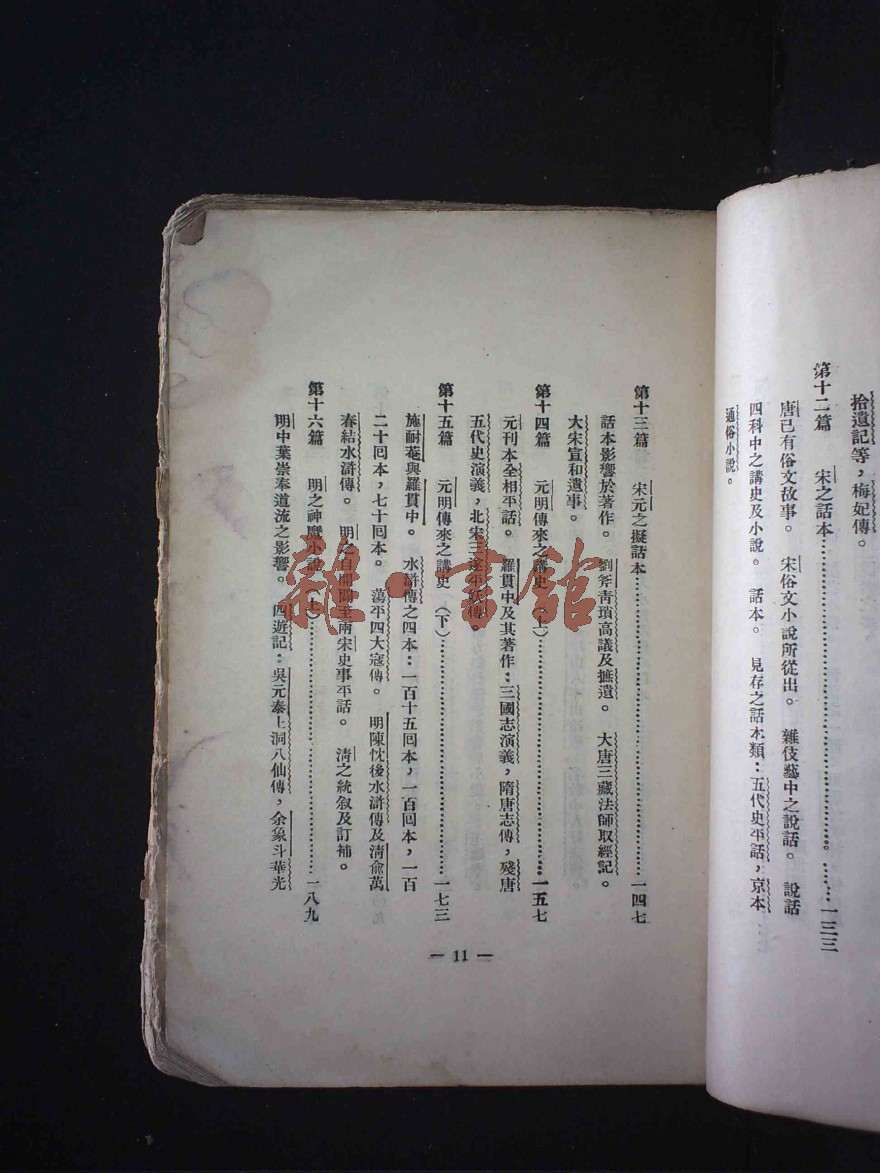 拾遺記等，梅妃傳。
第十二篇　宋之話本……一三三
唐已有俗文故事。　宋俗文小說所從出。　雜伎藝中之說話。　說話
四科中之講史及小說。　話本。　見存之話本類：五代史平話，京本
通俗小說。
第十三篇　宋元之擬話本……一四七
話本影響於著作。　劉斧青瑣高議及摭遺。　大唐三藏法師取經記。
大宋宣和遺事。
第十四篇　元明傳來之講史（上）……一五七
元刊本全相平話。　羅貫中及其著作：三國志演義，隋唐志傳，殘唐
五代史演義，北宋三遂平妖傳。
第十五篇　元明傳來之講史（下）……一七三
施耐菴與羅貫中。　水滸傳之四本：一百十五回本，一百回本，一百
二十回本，七十回本。　蕩平四大寇傳。　明陳忱後水滸傳及淸俞萬
春結水滸傳。　明之自開闢至兩宋史事平話。　淸之統叙及訂補。
第十六篇　明之神魔小說（上）……一八九
明中葉崇奉道流之影響。　四遊記：吳元泰上洞八仙傳，余象斗華光
— 11 —
雜·書館